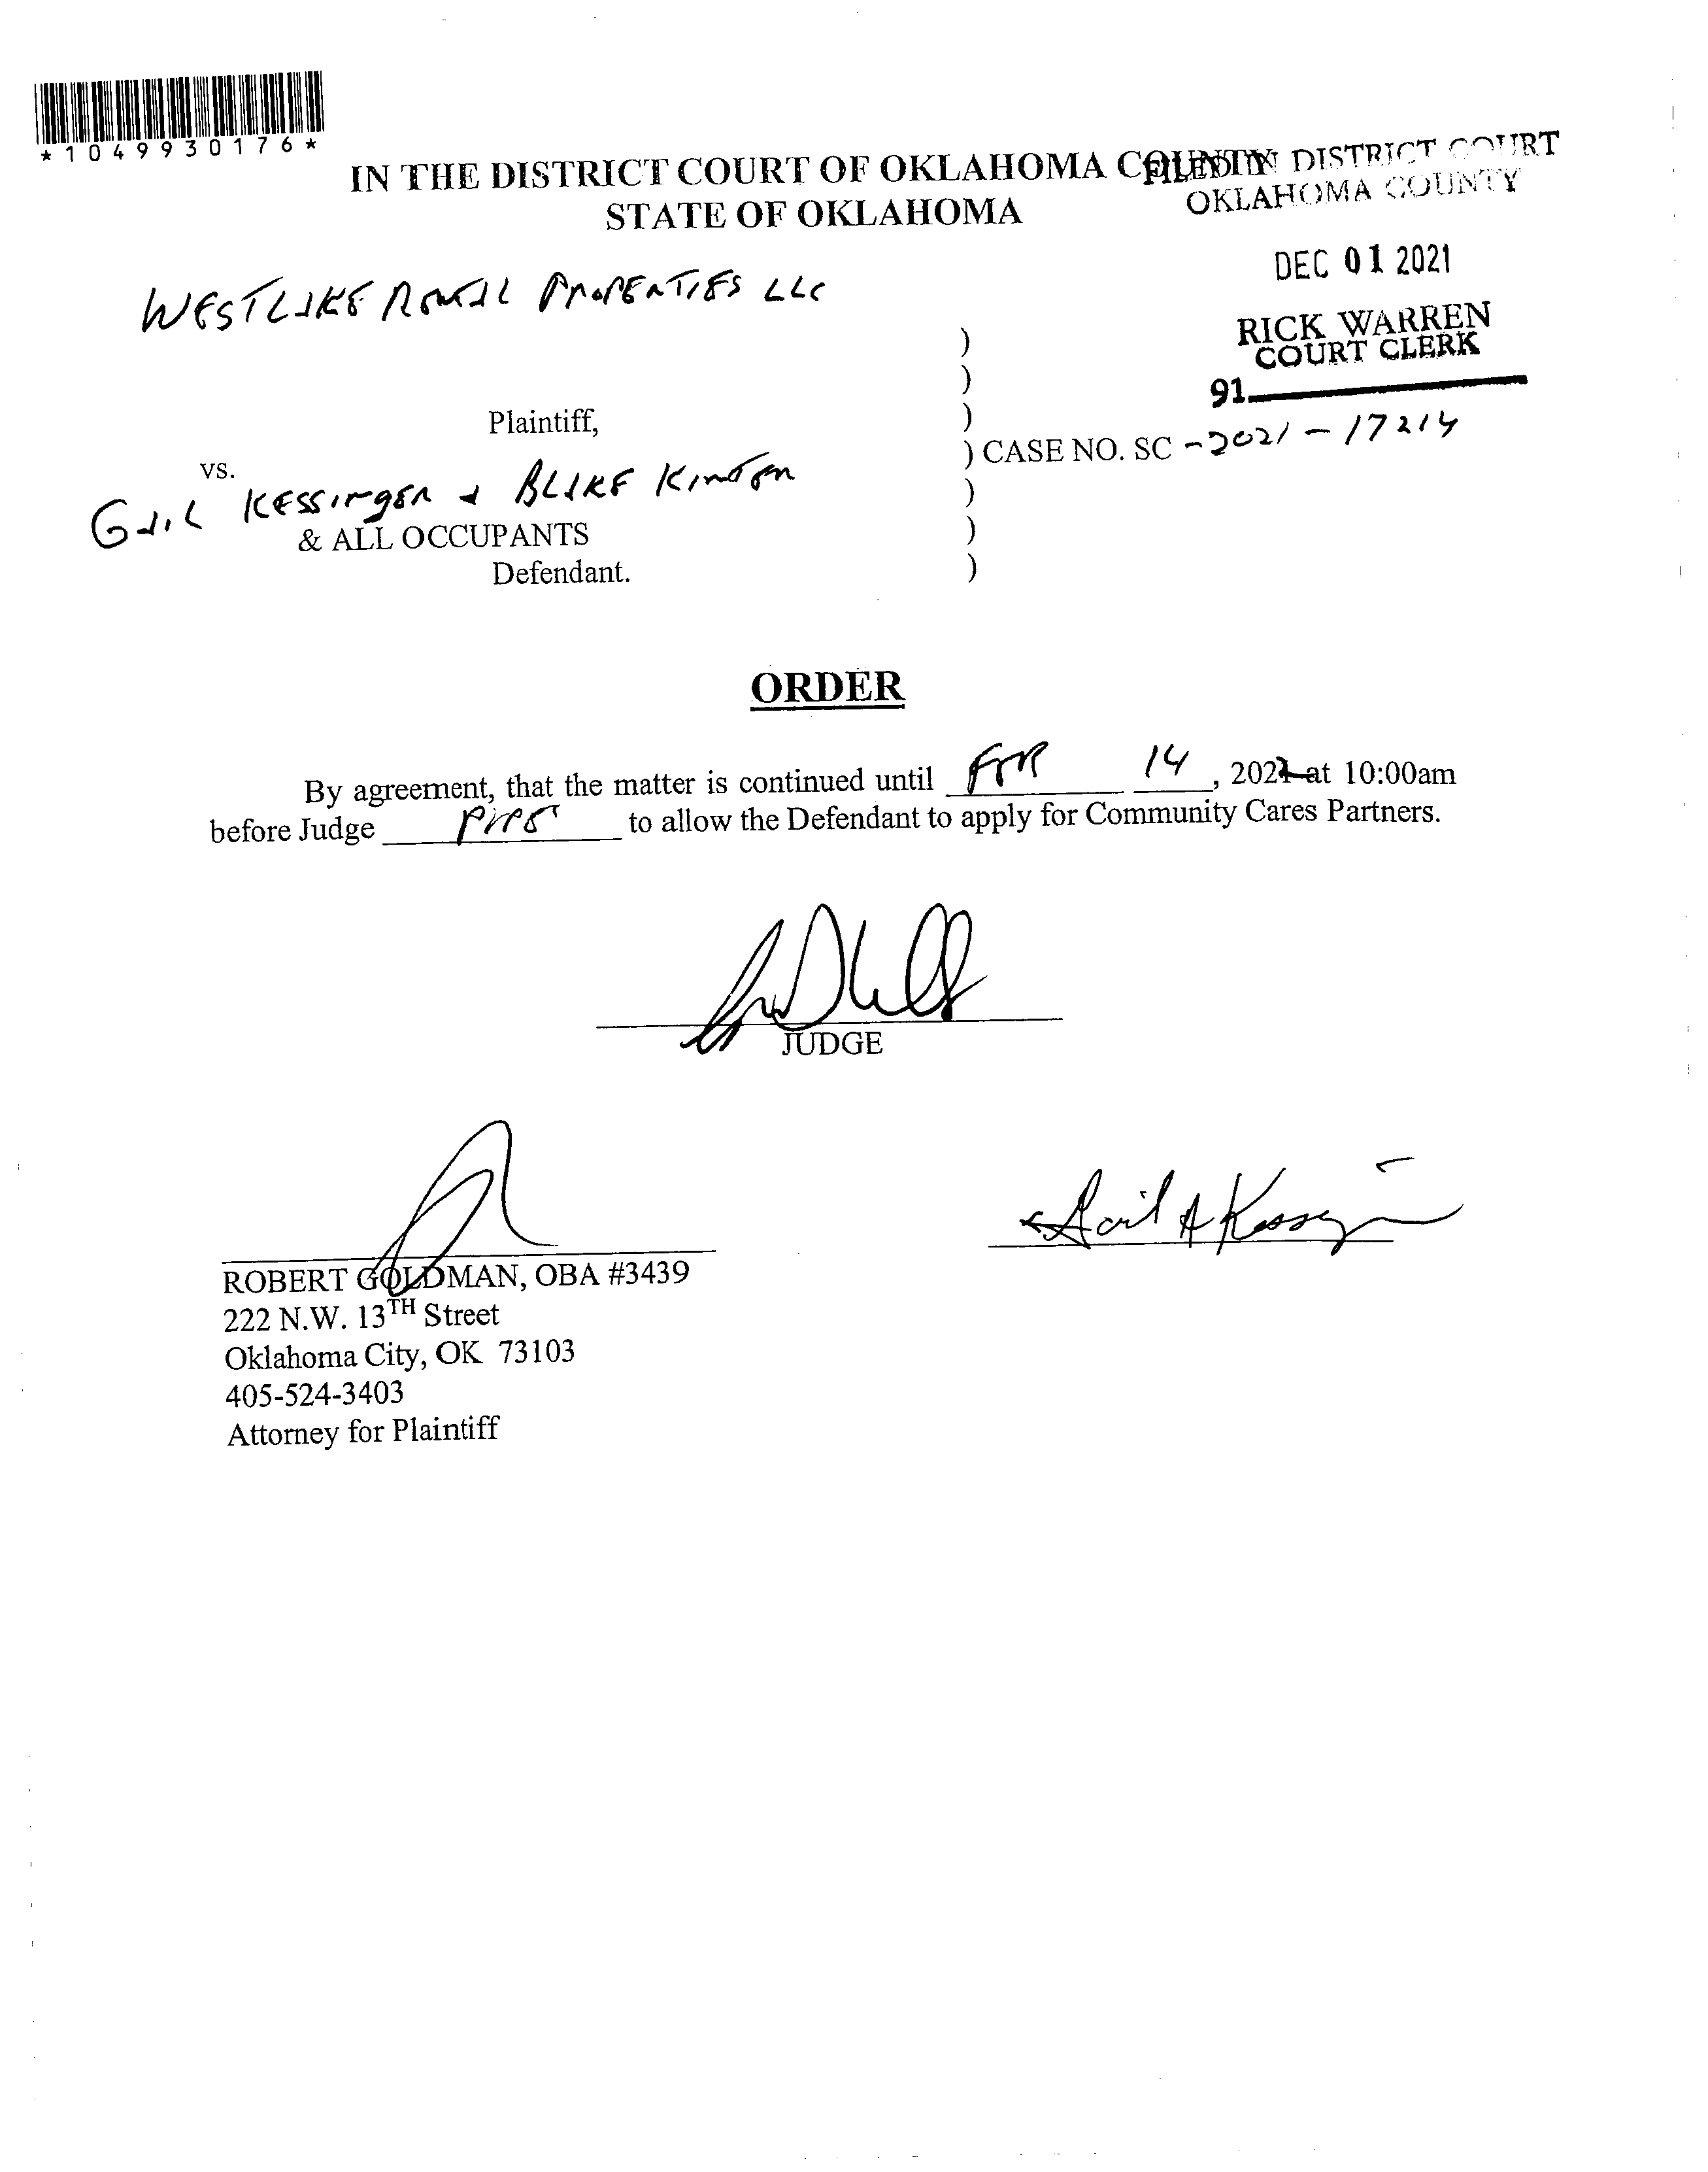 *1049930176*
IN THE DISTRICT COURT OF OKLAHOMA COUNTY
STATE OF OKLAHOMA
FILED IN DISTRICT COURT
OKLAHOMA COUNTY
DEC 01 2021
RICK WARREN
COURT CLERK
91
WESTLAKE PROPERTIES LLC
)
)
Plaintiff, )
) CASE NO. SC -2021-17214
vs. )
GAIL KESSINGER & BLAKE
& ALL OCCUPANTS )
Defendant. )
ORDER
By agreement, that the matter is continued until FEB 14, 2022 at 10:00am
before Judge to allow the Defendant to apply for Community Cares Partners.
JUDGE
Gail A Kessinger
ROBERT GOLDMAN, OBA #3439
222 N.W. 13TH Street
Oklahoma City, OK 73103
405-524-3403
Attorney for Plaintiff